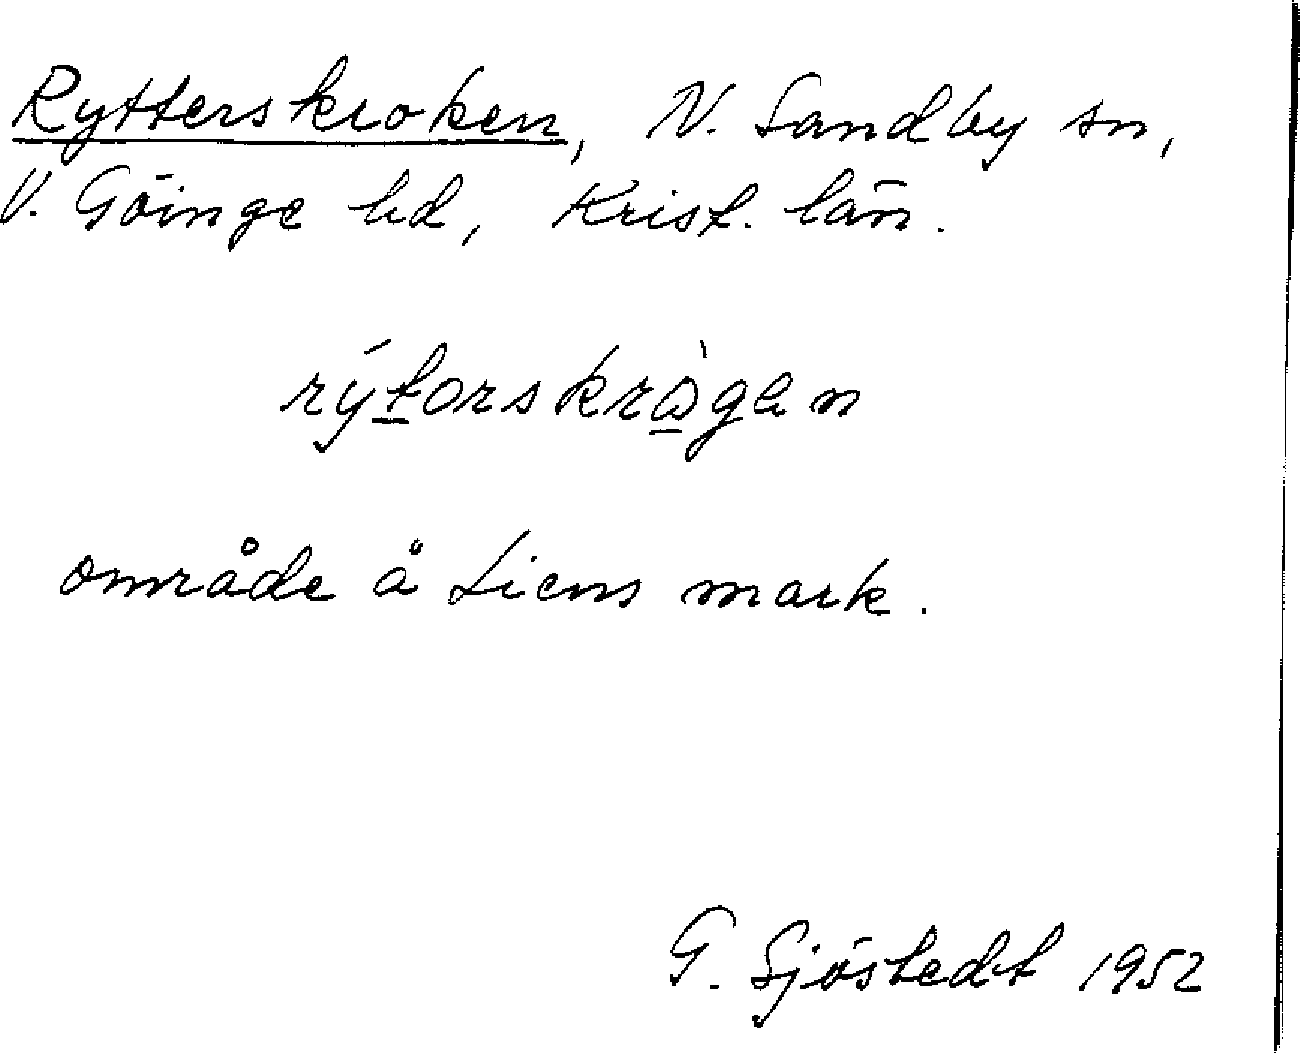 Rytterskroken, N. Sandby sn,
V. Göinge hd, Krist. län.
rýtorskràgen
område å Liens mark.
G. Sjöstedt 1952